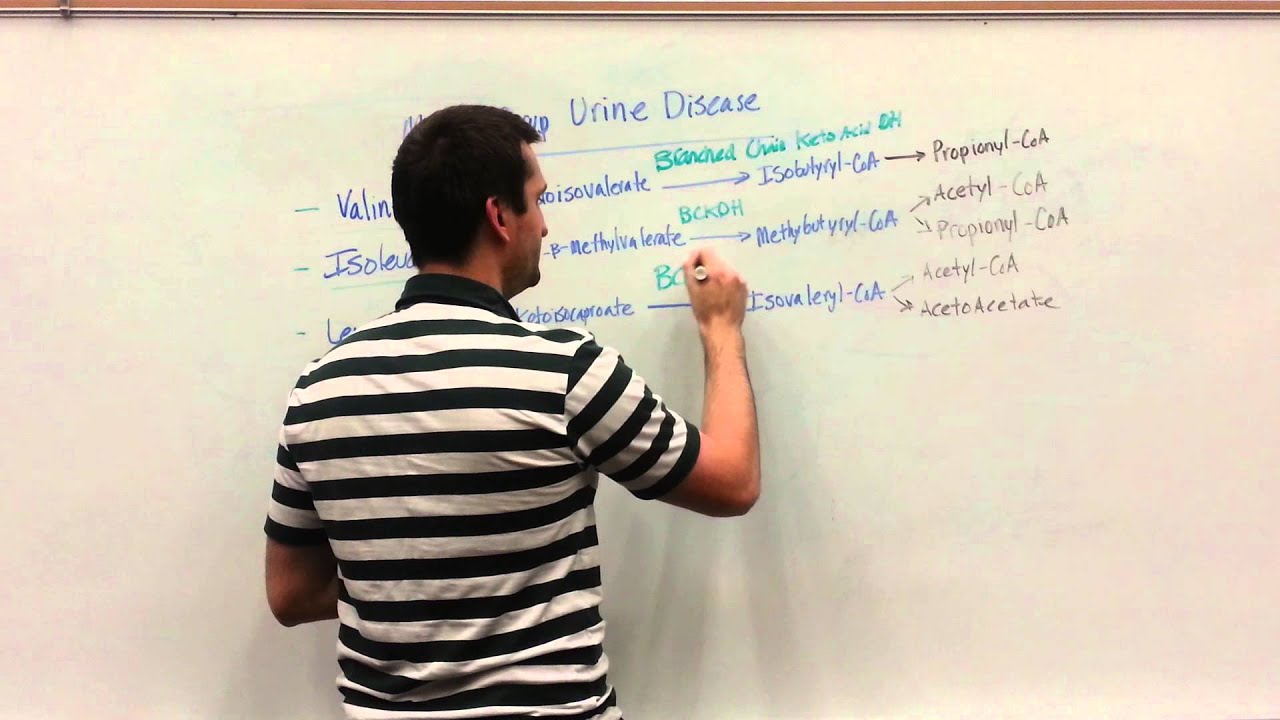 Urine Disease
Branched Chain KetoAcid DH
- Valin oisovalerate → Isobutyryl-CoA → Propionyl-CoA
BCKDH
- Isoleu -β-Methylvalerate → Methybutyryl-CoA Acetyl-CoA
Propionyl-CoA
BC
- Le ketoisocaproate Isovaleryl-CoA Acetyl-CoA
AcetoAcetate